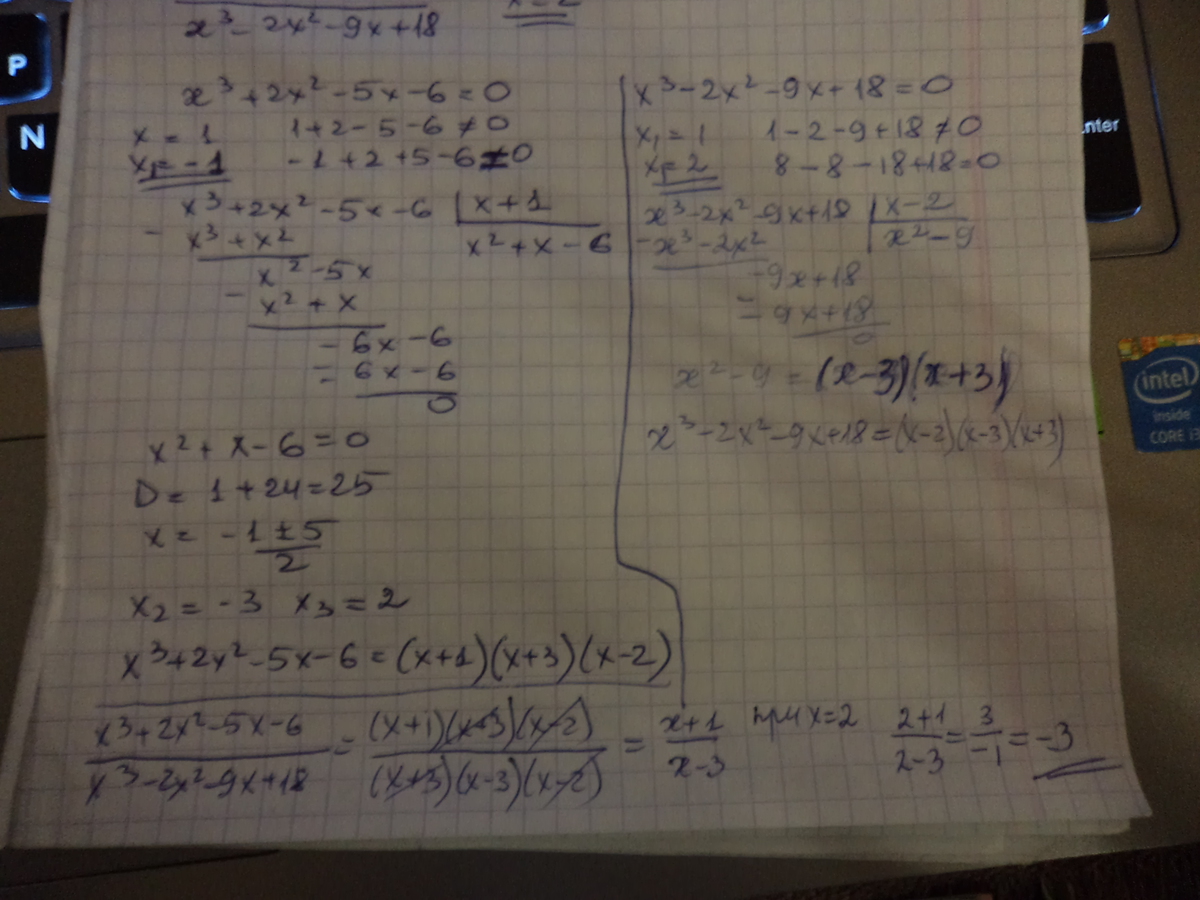 x³ - 2x² - 9x + 18
x³ + 2x² - 5x - 6 = 0
x = 1 1 + 2 - 5 - 6 ≠ 0
x₁ = -1 -1 + 2 + 5 - 6 = 0
x³ + 2x² - 5x - 6 | x + 1
- x³ + x² x² + x - 6
x² - 5x
- x² + x
- 6x - 6
= 6x - 6
0
x² + x - 6 = 0
D = 1 + 24 = 25
x = (-1 ± 5)/2
x₂ = -3 x₃ = 2
x³ + 2x² - 5x - 6 = (x+1)(x+3)(x-2)
x³ - 2x² - 9x + 18 = 0
x₁ = 1 1 - 2 - 9 + 18 ≠ 0
x₁ = 2 8 - 8 - 18 + 18 = 0
x³ - 2x² - 9x + 18 | x - 2
- x³ - 2x² x² - 9
-9x + 18
= 9x + 18
0
x² - 9 = (x-3)(x+3)
x³ - 2x² - 9x + 18 = (x-2)(x-3)(x+3)
(x³ + 2x² - 5x - 6)/(x³ - 2x² - 9x + 18) = ((x+1)(x+3)(x-2))/((x+3)(x-3)(x-2)) = (x+1)/(x-3) при x=2 (2+1)/(2-3) = 3/-1 = -3
P
N
Enter
intel
inside
CORE i3